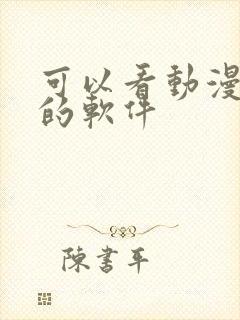 可以看動漫
的軟件
陳書平